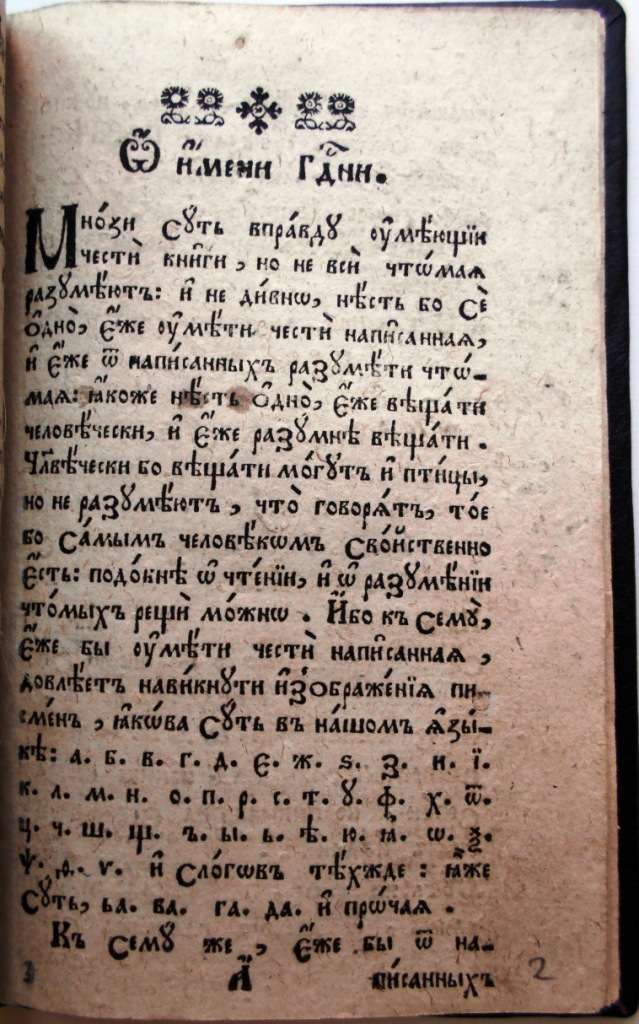 Ѿ и҆́мени гⷭ҇дни.
Мно́зи сꙋть впра́вдꙋ оумѣ́ющїи
честѝ кни̑ги, но не всѝ чтѡ́мая
разꙋмѣ́ютъ: и҆ не ди́внѡ, нѣ́сть бо сѐ
ѻ҆дно̀, є҆́же оумѣ́ти честѝ напи̑санная,
и҆ є҆́же ѿ напи́санныхъ разꙋмѣ́ти чтѡ́-
мая: ꙗ҆́коже нѣ́сть ѻ҆дно̀, є҆́же вѣща́ти
человѣ́чески, и҆ є҆́же разꙋ́мнѣ вѣща́ти.
Чл҃вѣ́чески бо вѣща́ти мо́гꙋтъ и҆ пти́цы,
но не разꙋмѣ́ютъ, что̀ говорѧ́тъ, то́е
бо са́мымъ человѣ́кѡмъ сво́йственно
є҆́сть: подо́бнѣ ѡ҆ чте́нїи, и҆ ѡ҆ разꙋмѣ́нїи
что́мыхъ рещѝ мо́жнѡ. И҆́бо къ семꙋ̀,
є҆́же бы оумѣ́ти честѝ напи̑санная,
довлѣ́етъ навы́кнꙋти и҆зѻбраже́нїя пи-
сме́нъ, ꙗ҆кѡ́ва сꙋть въ на́шомъ ѧ҆зы́-
кѣ: а. б. в. г. д. є. ж. ѕ. з. и. ї.
к. л. м. н. о. п. р. с. т. ꙋ. ф. х. ѿ.
ц. ч. ш. щ. ъ. ы. ь. ѣ. ю. ꙗ. ѡ. ѯ.
ѱ. ѳ. ѵ. и҆ сло́гѡвъ тѣ́хжде: ꙗ҆́же
сꙋть, ба. ва. га. да. и҆ прѡ́чая.
Къ семꙋ же, є҆́же бы ѿ на-
А҃ пи́санныхъ 2